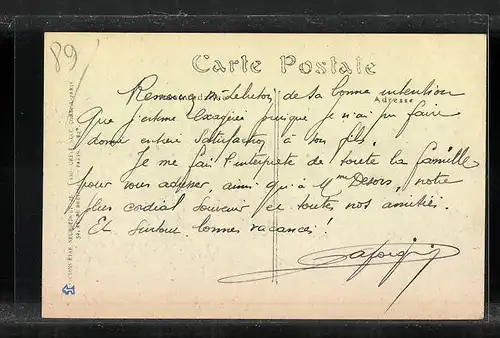 89
Carte Postale
Adresse
Remerciez M. Lebreton de sa bonne intention
Que j'estime exagérée puisque je n'ai pu faire
donner entière satisfaction à son fils.
Je me fais l'interprète de toute la famille
pour vous adresser, ainsi qu'à Mme Desors, notre
plus cordial souvenir et toutes nos amitiés.
Et surtout bonnes vacances !